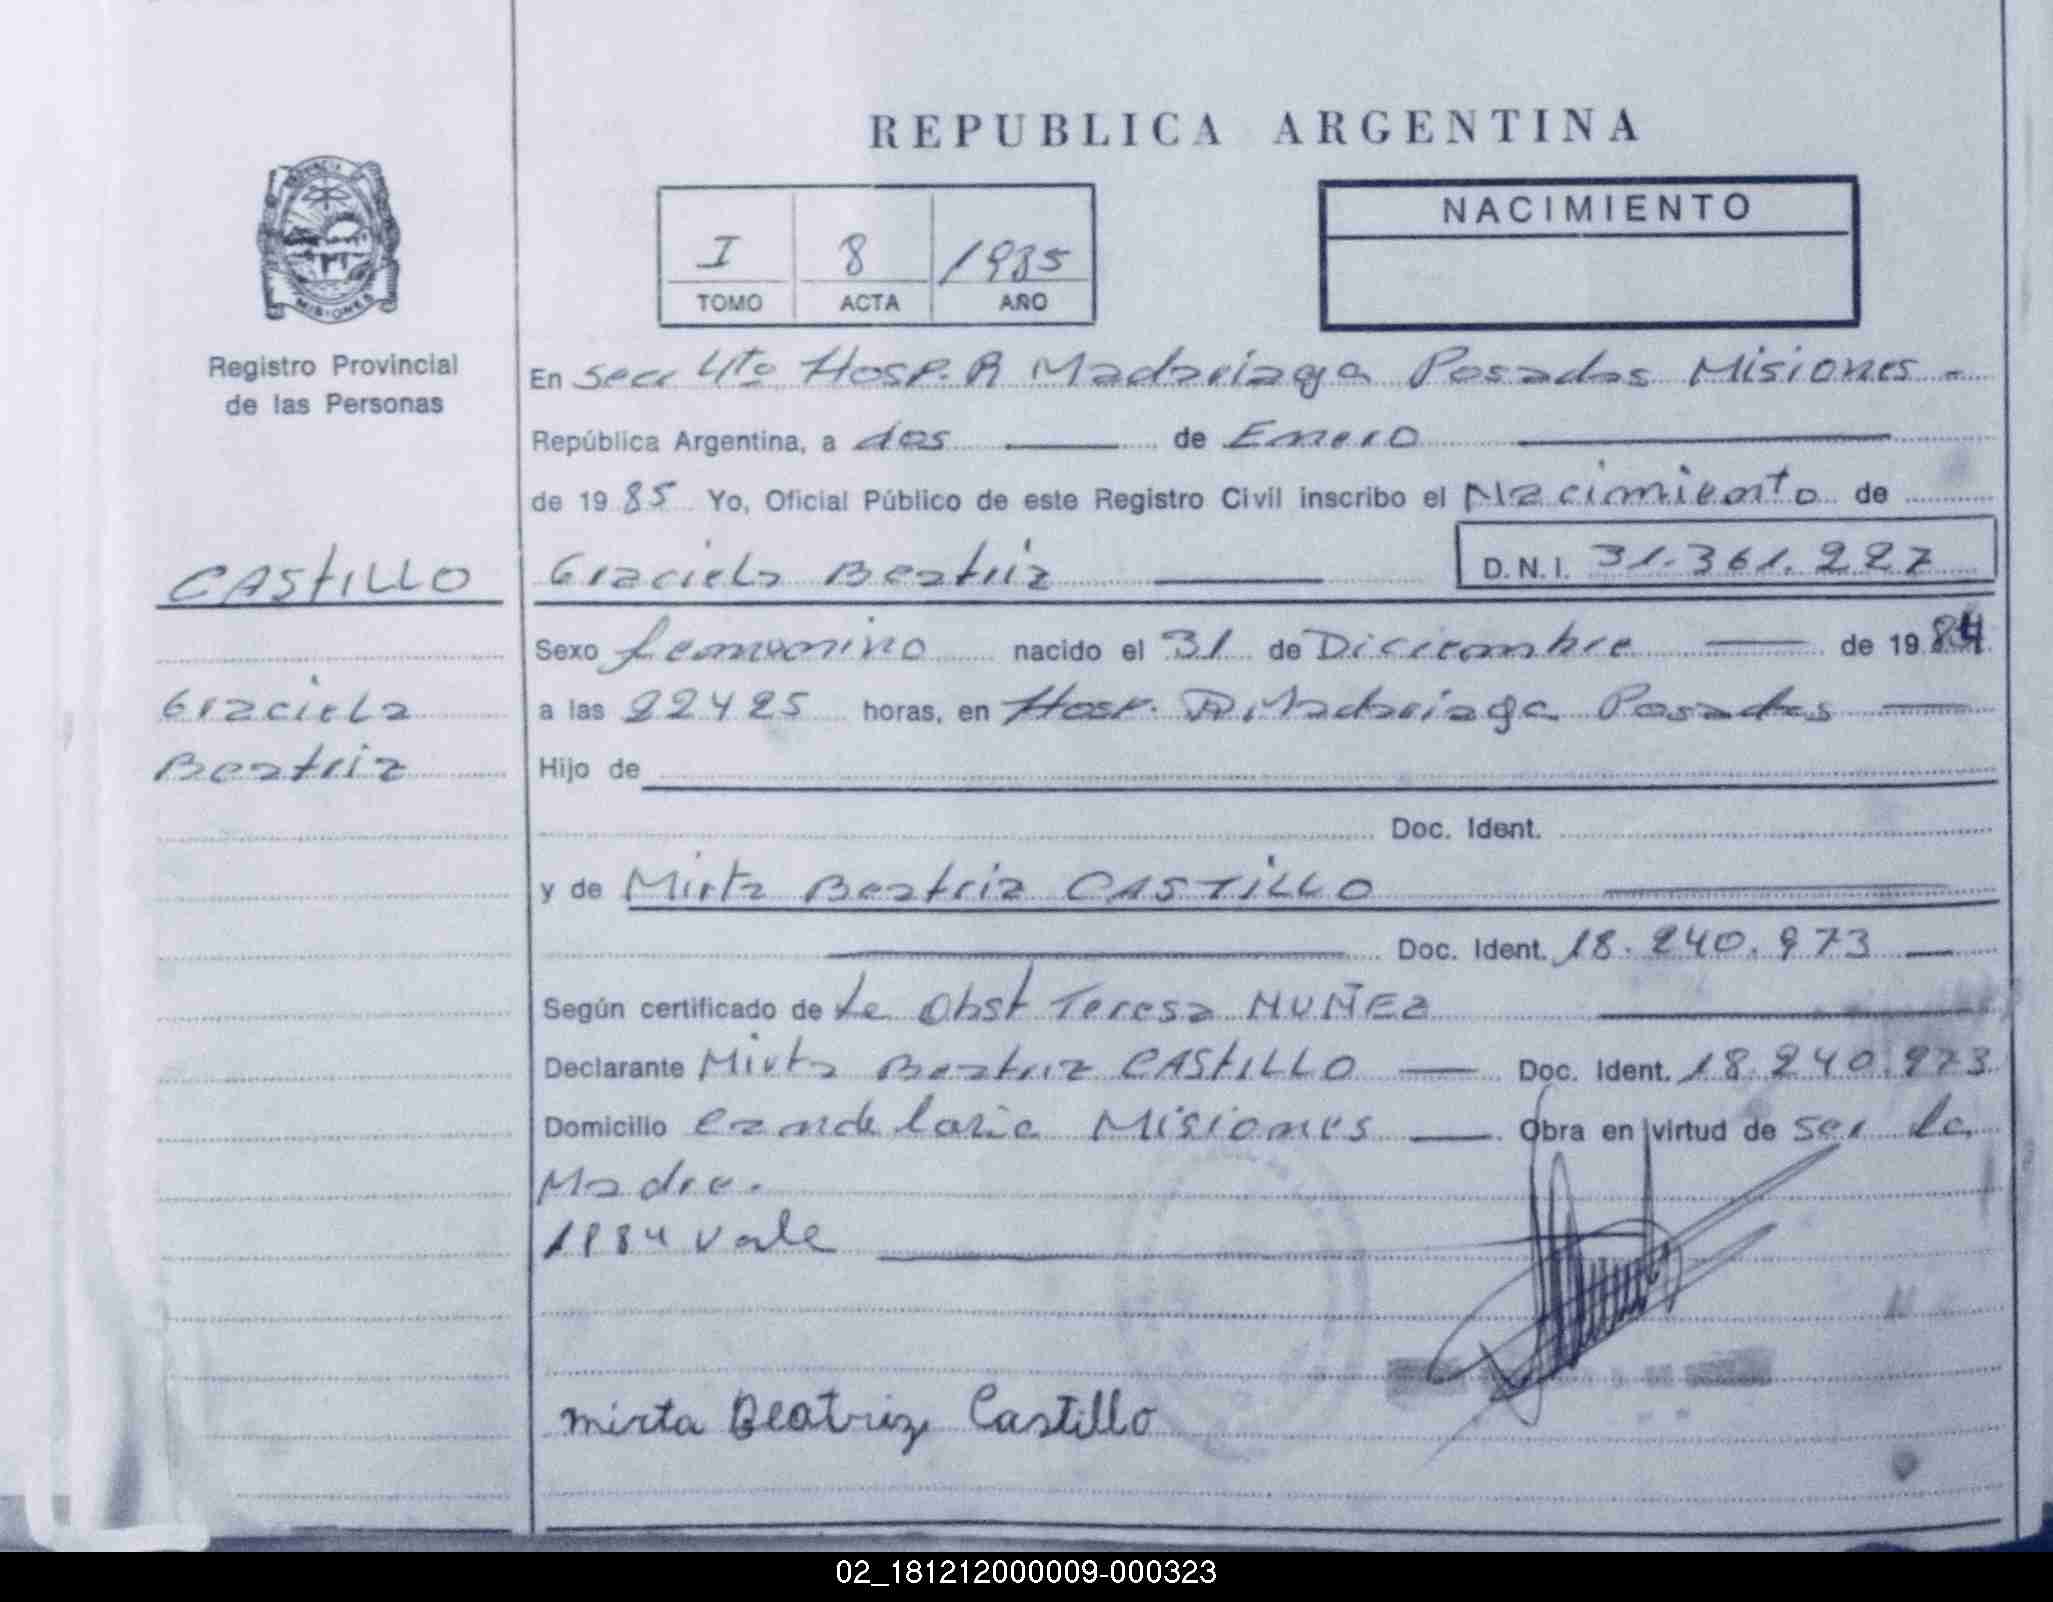 REPUBLICA ARGENTINA
PROVINCIA
MISIONES
Registro Provincial
de las Personas
I 8 1985
TOMO ACTA AÑO
NACIMIENTO
En secc 4to Hosp. R Madariaga Posadas Misiones -
República Argentina, a dos de Enero
de 19 85 Yo, Oficial Público de este Registro Civil inscribo el Nacimiento de
CASTILLO Graciela Beatriz D.N.I. 31.361.227
Sexo femenino nacido el 31 de Diciembre de 19 84
Graciela a las 22 y 25 horas, en Hosp. R Madariaga Posadas
Beatriz Hijo de
Doc. Ident.
y de Mirta Beatriz CASTILLO
Doc. Ident. 18.240.973
Según certificado de la Obst Teresa MUÑEZ
Declarante Mirta Beatriz CASTILLO Doc. Ident. 18.240.973
Domicilio Candelaria Misiones Obra en virtud de ser la
Madre.
1984 vale
mirta Beatriz Castillo
02_181212000009-000323